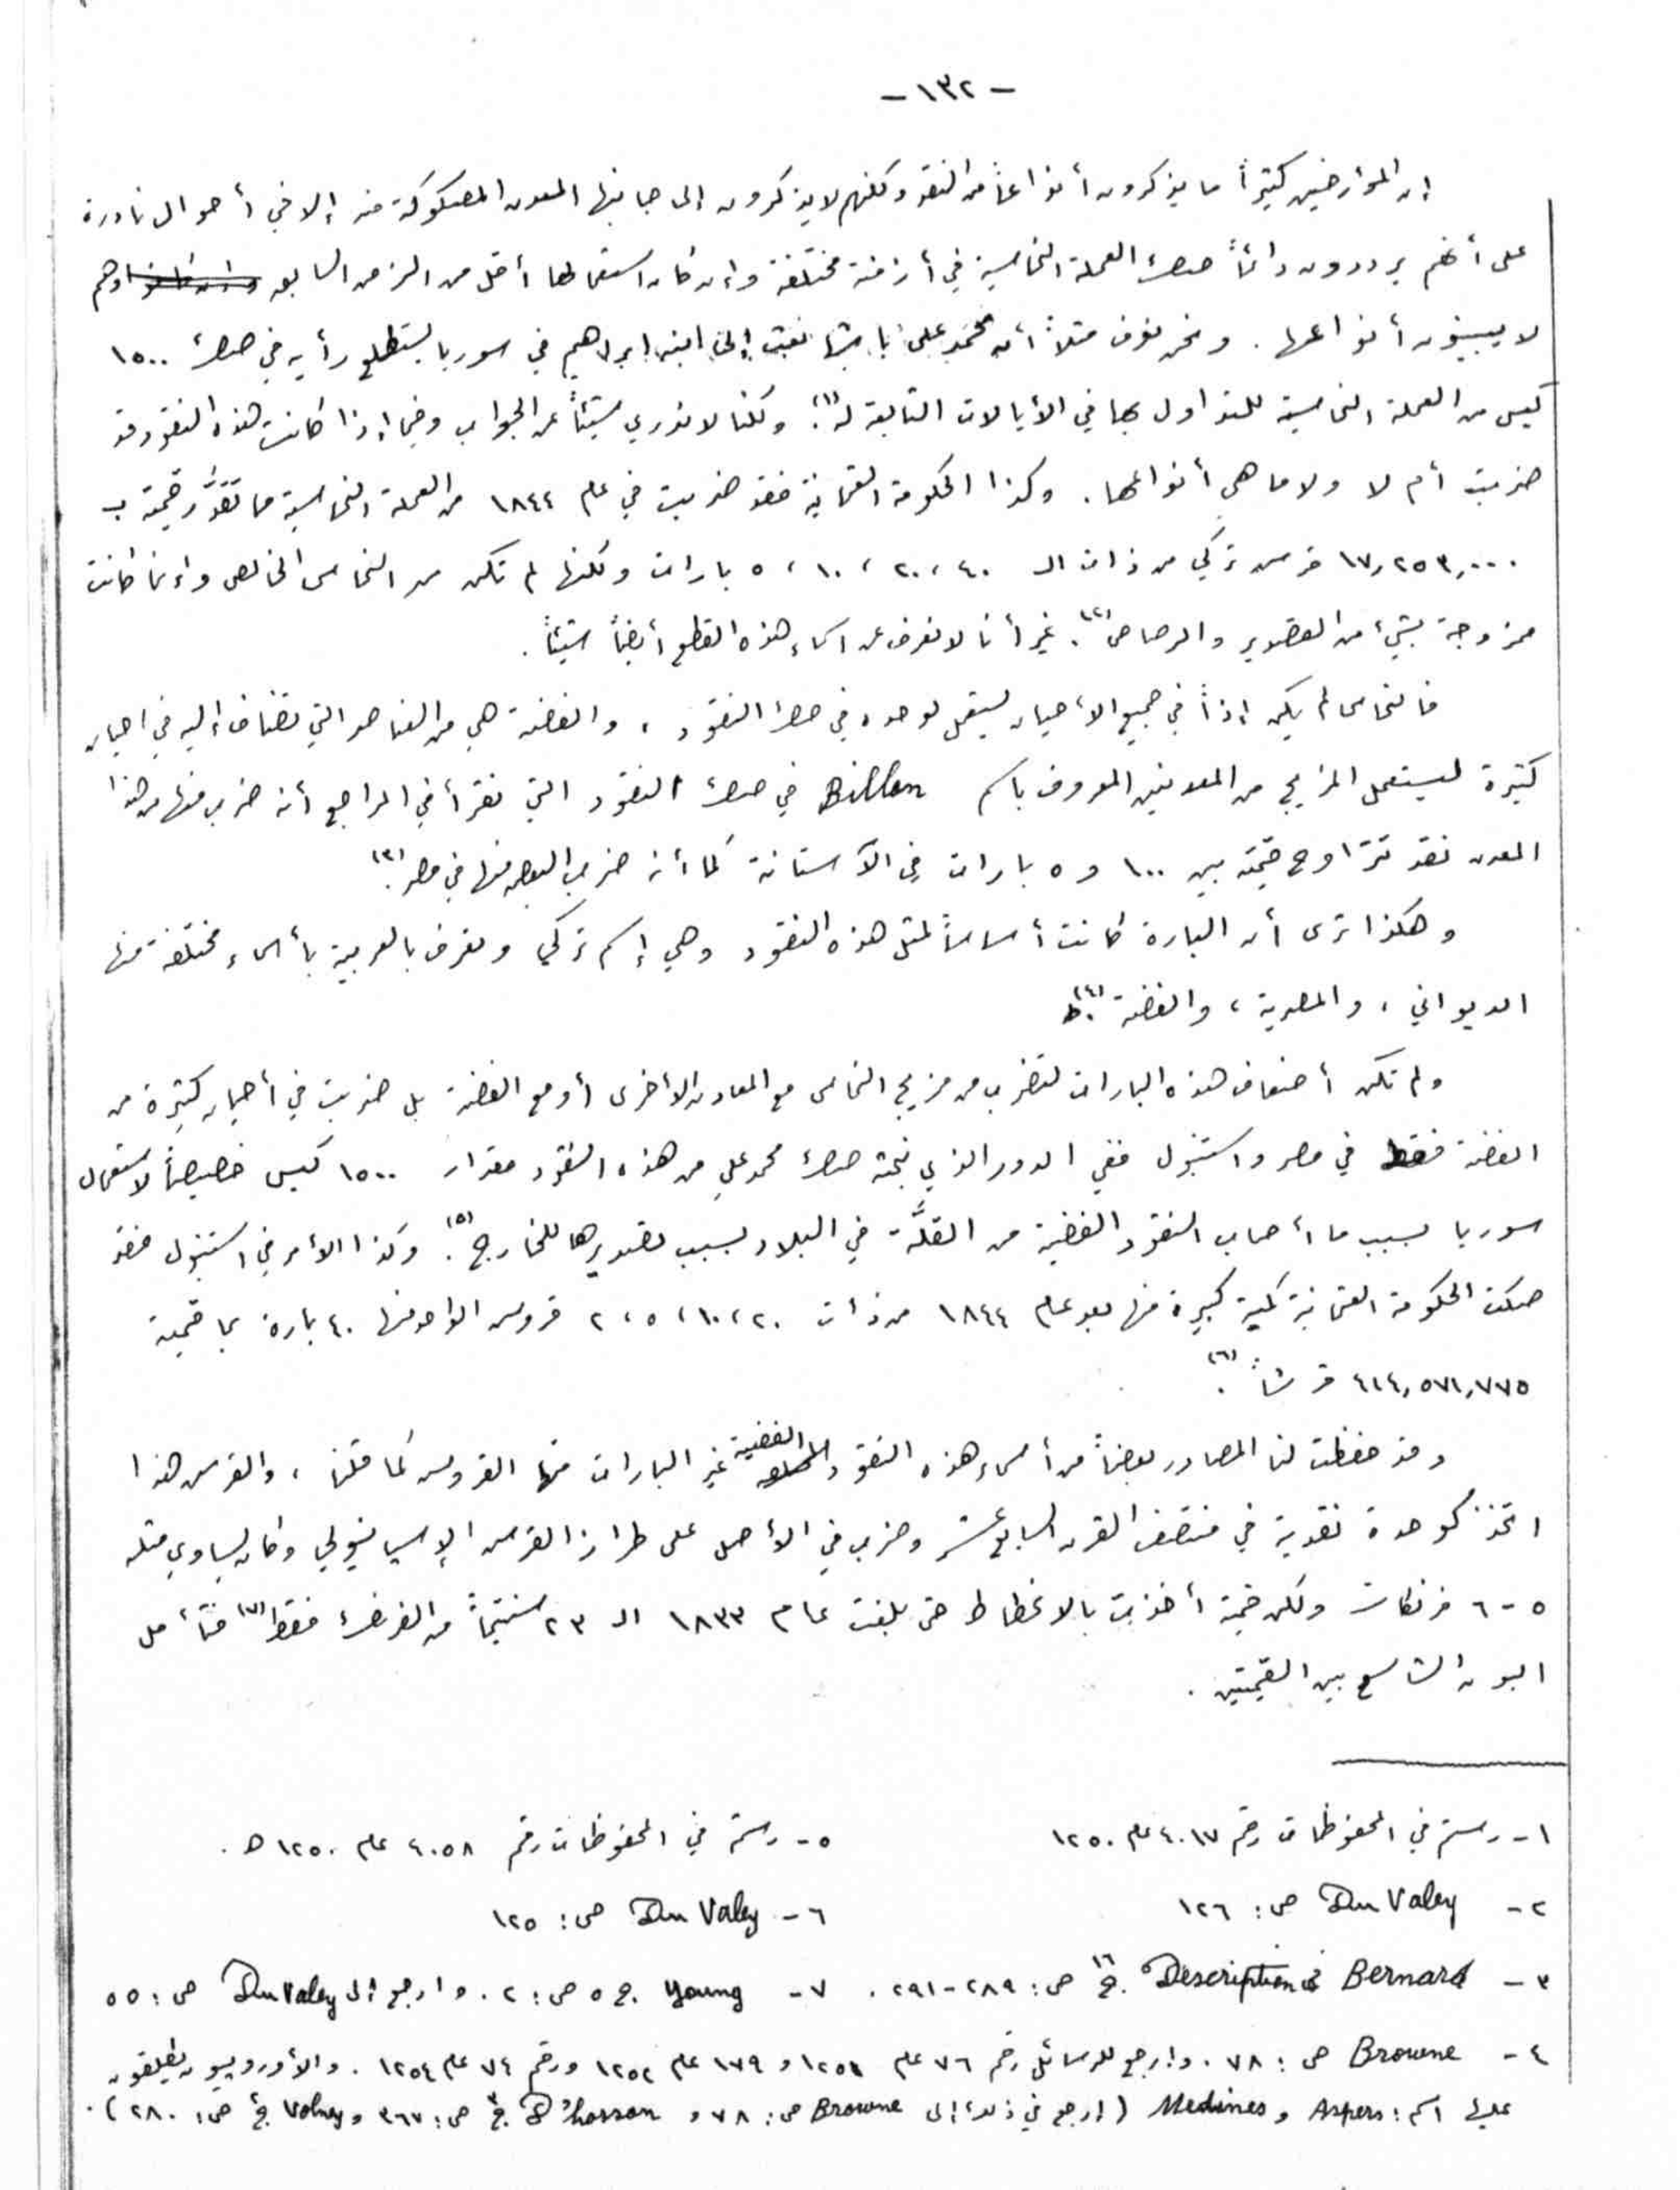 - ١٣٢ -
إن المؤرخين كثيراً ما يذكرون أنواعاً من النقد ولكنهم لا يذكرون إلى جانبها المعدن المصكوكة منه إلا في أحوال نادرة
على أنهم يرددون دائماً صك العملة النحاسية في أزمنة مختلفة وإن كان استعمالها أقل من الزمن السابق وهم
لا يبينون أنواعها . ونحن نعرف مثلاً أن محمد علي باشا بعث إلى ابنه ابراهيم في سوريا يستطلع رأيه في صك ١٥٠٠
كيس من العملة النحاسية للتداول بها في الأيالات التابعة له(١)؛ ولكنا لا ندري شيئاً عن الجواب وفيما إذا كانت هذه النقود قد
ضربت أم لا ولا ما هي أنواعها . وكذا الحكومة العثمانية فقد ضربت في عام ١٨٤٤ من العملة النحاسية ما تقدَّر قيمته ب
١٧,٢٥٣,٠٠٠ قرش تركي من ذات الـ ٤٠ ، ٢٠ ، ١٠ ، ٥ بارات ولكنها لم تكن من النحاس الخالص وإنما كانت
ممزوجة بشيء من القصدير والرصاص(٢). غير أنا لا نعرف عن اسماء هذه القطع أيضاً شيئاً .
فالنحاس لم يكن إذاً في جميع الأحيان يستعمل لوحده في صك النقود ، والفضة هي من العناصر التي تضاف إليه في احيان
كثيرة ليستعمل المزيج من المعدنين المعروف باسم Billon في صك النقود التي نقرأ في المراجع أنه ضرب منها من هذا
المعدن نقد تتراوح قيمته بين ١٠٠ و ٥ بارات في الآستانة كما أنه ضرب البعض منها في مصر(٣).
وهكذا ترى أن البارة كانت أساساً لمثل هذه النقود وهي إسم تركي وتعرف بالعربية بأسماء مختلفة منها
الديواني ، والمصرية ، والفضة(٤).
ولم تكن أضعاف هذه البارات لتضرب من مزيج النحاس مع المعادن الأخرى أو مع الفضة بل ضربت في أحيان كثيرة من
الفضة فقط في مصر واستنبول ففي الدور الذي نبحثه صك محمد علي من هذه النقود مقدار ١٥٠٠ كيس خصيصاً لاستعمال
سوريا بسبب ما أصاب النقود الفضية من القلَّة في البلاد بسبب تصديرها للخارج(٥). وكذا الأمر في استنبول فقد
صكت الحكومة العثمانية كمية كبيرة منها بعد عام ١٨٤٤ من ذات ٢٠ ، ١٠ ، ٥ ، ٢ قروش الواحد منها ٤٠ بارة بما قيمته
٤١٤,٥٧١,٧٧٥ قرشاً(٦).
وقد حفظت لنا المصادر بعضاً من أسماء هذه النقود الفضية غير البارات منها القروش كما قلنا ، والقرش هذا
اتخذ كوحدة نقدية في منتصف القرن السابع عشر وضرب في الأصل على طراز القرش الإسبانيولي وكان يساوي مثله
٥ - ٦ فرنكات ولكن قيمته أخذت بالانحطاط حتى بلغت عام ١٨٣٣ الـ ٢٣ سنتيماً من الفرنك فقط(٧) فتأمل
البون الشاسع بين القيمتين .
١ - رستم في المحفوظات رقم ٤٠١٧ عام ١٢٥٠
٢ - Du Valey ص : ١٢٦
٣ - Bernard في Description ج ١٦ ص : ٢٨٩ - ٢٩١ .
٤ - Browne ص : ٧٨ . وارجع للرسائل رقم ٧٦ عام ١٢٥١ و ١٧٩ عام ١٢٥٢ ورقم ٧٤ عام ١٢٥٤ . والأوروبيون يطلقون
عليها اسم : Aspers و Medines ( إرجع في ذلك إلى Browne ص : ٧٨ و D'hosson ج ٣ ص : ٣٦٧ و Volney ج ص : ٢٨٠ ) .
٥ - رستم في المحفوظات رقم ٤٠٥٨ عام ١٢٥٠ ه .
٦ - Du Valey ص : ١٢٥
٧ - Young ج ٥ ص : ٢ . وارجع إلى Du Valey ص : ٥٥